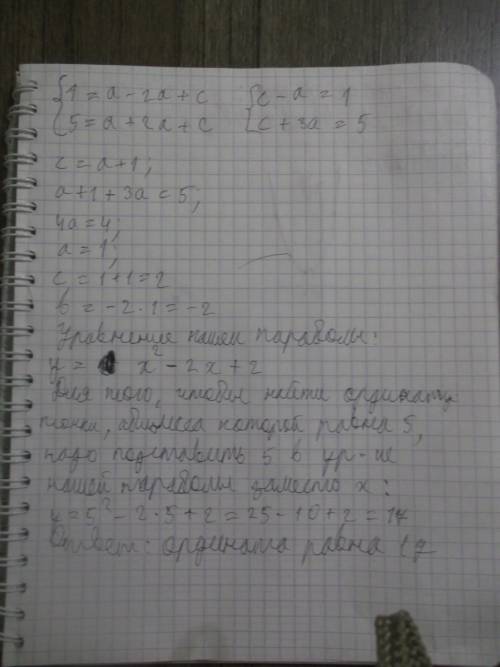 {1 = a - 2a + c {c - a = 1
{5 = a + 2a + c {c + 3a = 5
c = a + 1;
a + 1 + 3a = 5;
4a = 4;
a = 1;
c = 1 + 1 = 2
b = -2 · 1 = -2
Уравнение нашей параболы:
y = x² - 2x + 2
Для того, чтобы найти ординату
точки, абцисса которой равна 5,
надо подставить 5 в ур-ие
нашей параболы заместо x:
y = 5² - 2 · 5 + 2 = 25 - 10 + 2 = 17
Ответ: ордината равна 17